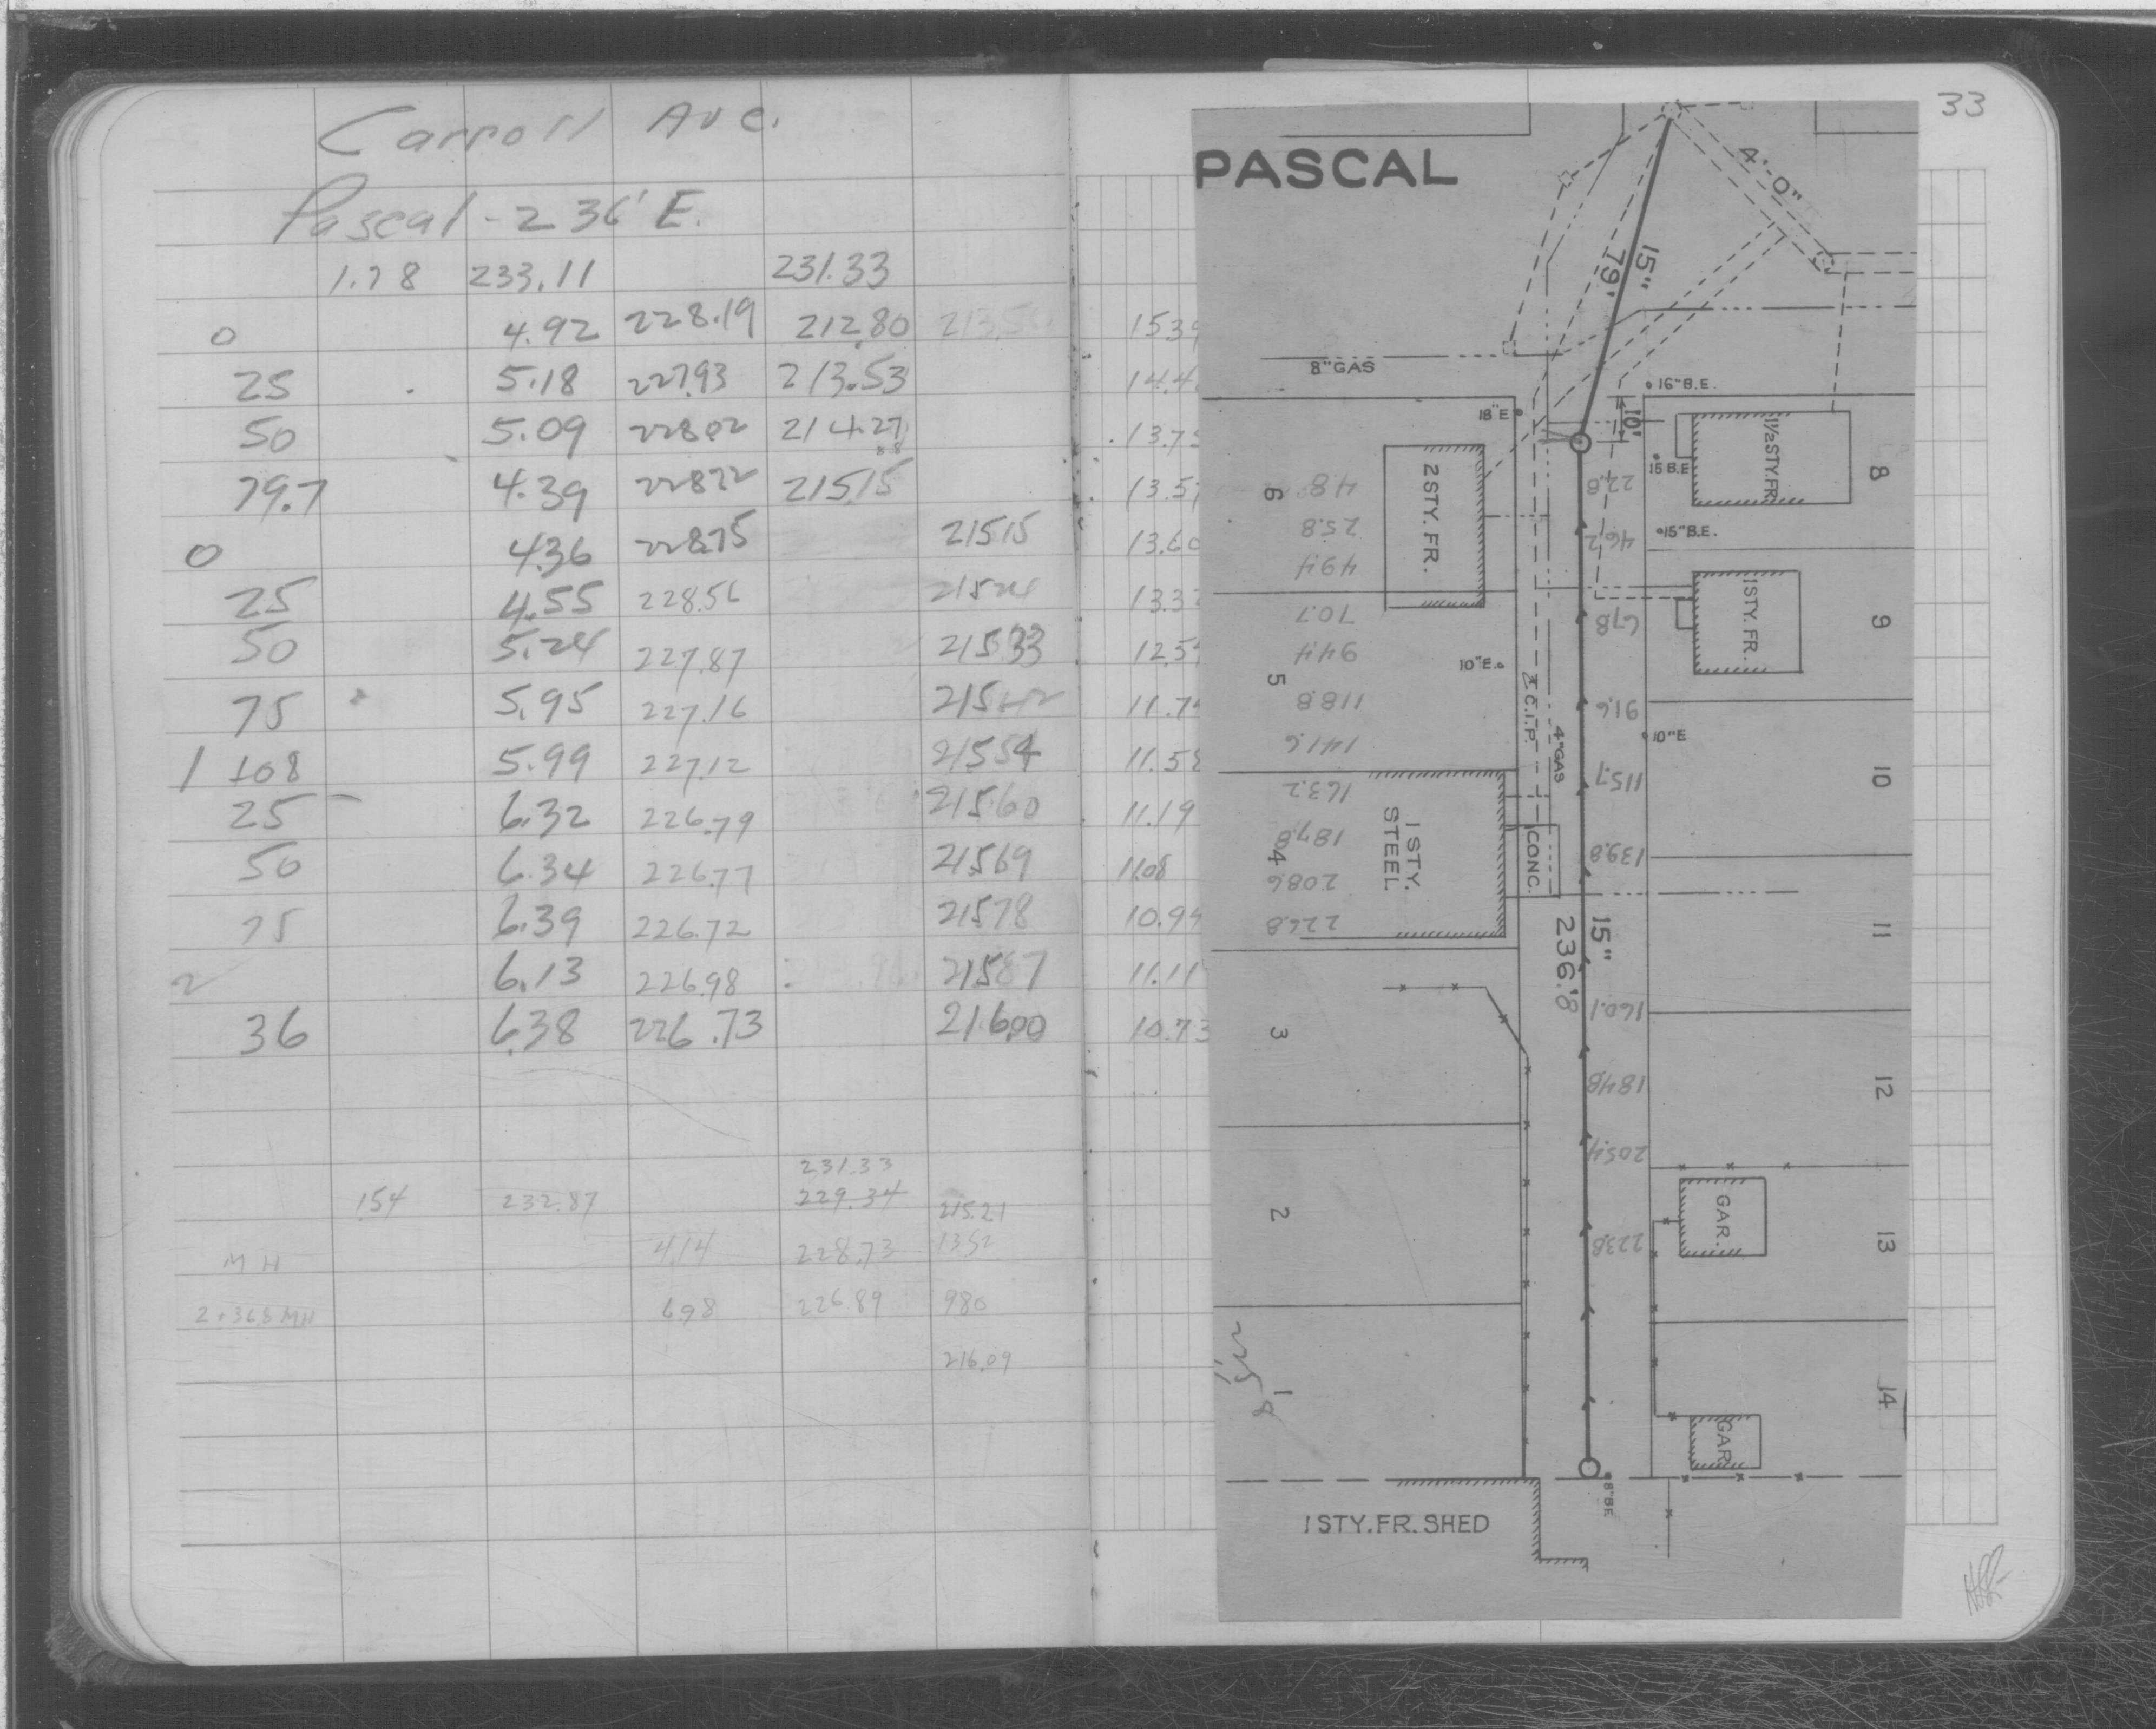 Carroll Ave.
Pascal - 236' E.
1.78 233.11 231.33
0 4.92 228.19 212.80 213.50
25 5.18 227.93 213.53
50 5.09 228.02 214.27
88
79.7 4.39 228.72 215.15
0 4.36 228.75 215.15 13.60
25 4.55 228.56 215.24
50 5.24 227.87 215.33
75 5.95 227.16 215.42
1 +08 5.99 227.12 215.54
25 6.32 226.79 215.60 11.19
50 6.34 226.77 215.69 11.08
75 6.39 226.72 215.78
2 6.13 226.98 215.87 11.11
36 6.38 226.73 216.00 10.73
231.33
1.54 232.87 229.34 215.21
MH 4.14 228.73 13.52
2+36.8 MH 6.98 226.89 980
216.09
33
PASCAL
4'-0"
15"
79'
8"GAS
16"B.E.
18"E
10'
15"B.E
15"B.E.
2 STY. FR.
1½STY.FR.
1 STY. FR.
6
5
4
3
2
1
8
9
10
11
12
13
14
4.8
25.8
49.4
70.7
94.4
118.8
141.6
163.2
187.8
208.6
224.8
22.8
46.2
67.8
91.6
115.7
139.8
160.1
184.8
205.4
223.8
10"E.
10"E
4"GAS
1 STY. STEEL
CONC.
15"
236.'8
GAR.
GAR.
8"BE
1 STY. FR. SHED